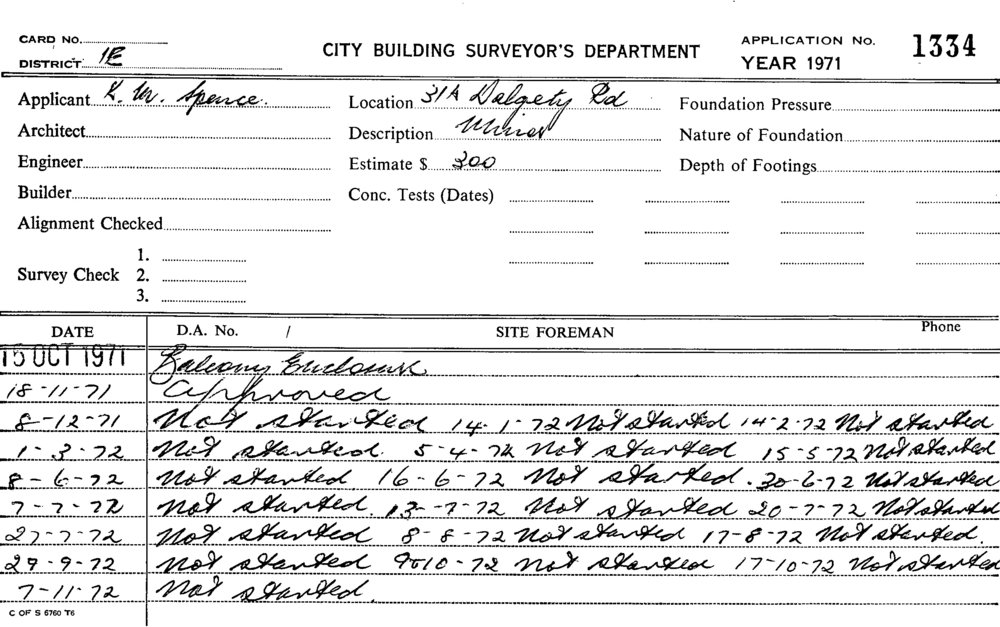 CARD NO.
DISTRICT 1E
CITY BUILDING SURVEYOR'S DEPARTMENT
APPLICATION No. 1334
YEAR 1971
Applicant K. W. Spence. Location 31A Dalgety Rd Foundation Pressure
Architect Description Minor Nature of Foundation
Engineer Estimate $ 300 Depth of Footings
Builder Conc. Tests (Dates)
Alignment Checked
1.
Survey Check 2.
3.
DATE D.A. No. / SITE FOREMAN Phone
15 OCT 1971 Balcony Enclosure
18-11-71 Approved
8-12-71 Not started 14-1-72 Not started 14-2-72 Not started
1-3-72 Not started. 5-4-72 Not started 15-5-72 Not started
8-6-72 Not started 16-6-72 Not started. 30-6-72 Not started
7-7-72 Not started. 13-7-72 Not started 20-7-72 Not started
27-7-72 Not started 8-8-72 Not started 17-8-72 Not started.
29-9-72 Not started 9-10-72 Not started 17-10-72 Not started
7-11-72 Not started.
C OF S 6760 T6